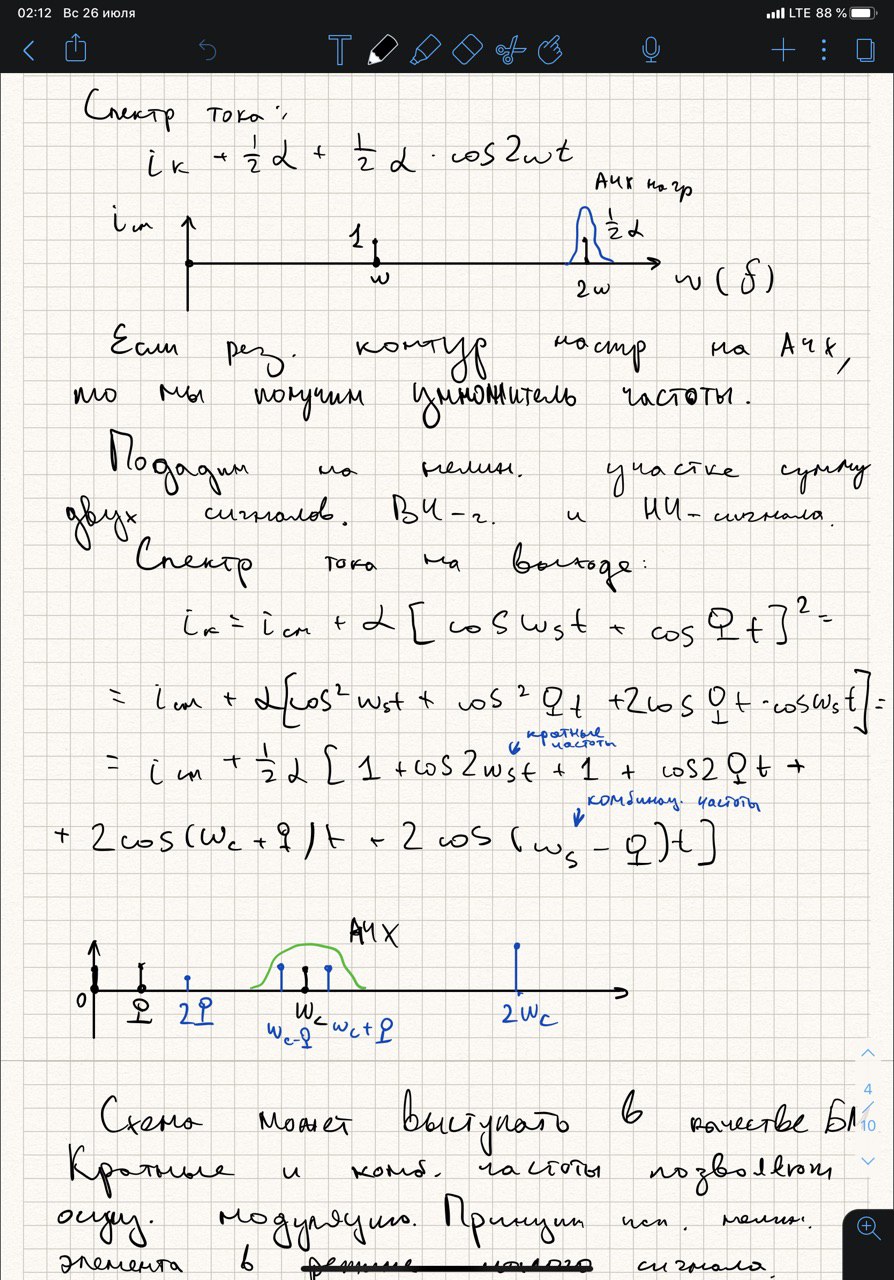 02:12 Вс 26 июля LTE 88 %
T
Спектр тока:
iк + 1/2 α + 1/2 α · cos2wt
АЧХ нагр
iсm 1 1/2 α
w 2w w (f)
Если рез. контур настр на АЧХ,
то мы получим умножитель частоты.
Подадим на нелин. участке сумму
двух сигналов. ВЧ-г. и НЧ-сигнала.
Спектр тока на выходе:
iк = iсm + α [ cos wst + cos Ωt ]² =
= iсm + α[cos² wst + cos² Ωt + 2cos Ωt · cos wst] =
кратные
частоты
= iсm + 1/2 α [ 1 + cos2wst + 1 + cos2 Ωt +
комбинац. частоты
+ 2cos(wc + Ω)t + 2 cos (ws - Ω)t ]
АЧХ
0 Ω 2Ω wc 2wc
wc-Ω wc+Ω
4
10
Схема может выступать в качестве БМ
Кратные и комб. частоты позволяют
осущ. модуляцию. Принцип исп. нелин.
элемента в сигнала.